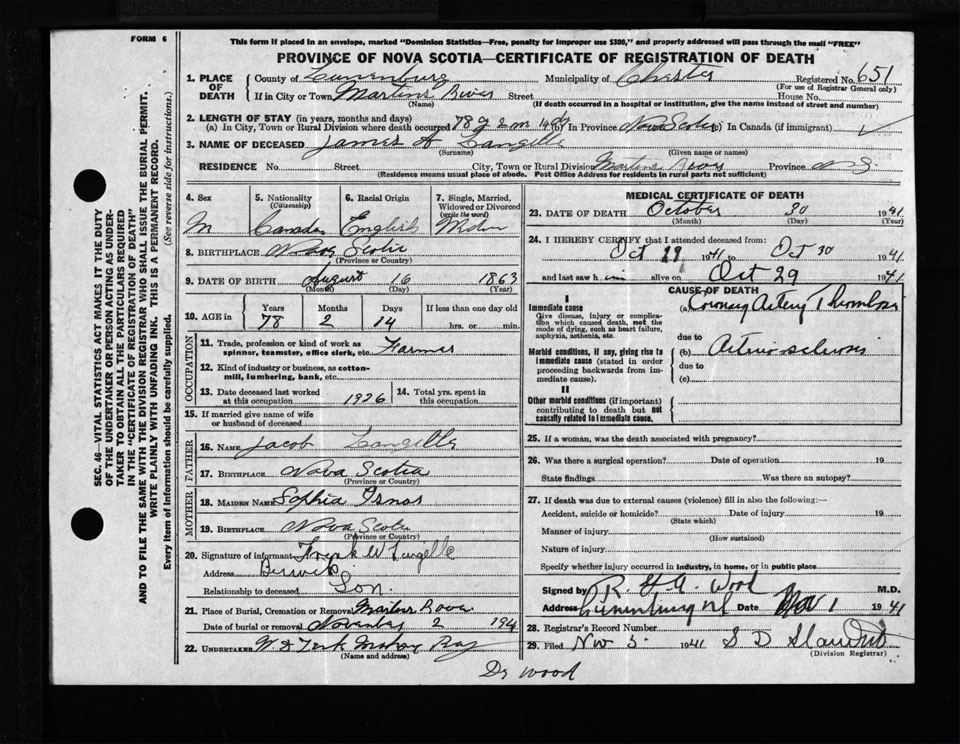 FORM 6
This form if placed in an envelope, marked "Dominion Statistics—Free, penalty for improper use $300," and properly addressed will pass through the mail "FREE"
PROVINCE OF NOVA SCOTIA—CERTIFICATE OF REGISTRATION OF DEATH
1. PLACE OF DEATH County of Lunenburg Municipality of Chester Registered No. 651
(For use of Registrar General only)
If in City or Town Martins River Street House No.
(Name) (If death occurred in a hospital or institution, give the name instead of street and number)
2. LENGTH OF STAY (in years, months and days)
(a) In City, Town or Rural Division where death occurred 78 y 2 m 14 dy (b) In Province Nova Scotia (c) In Canada (if immigrant)
3. NAME OF DECEASED James A Langille
(Surname) (Given name or names)
RESIDENCE No. Street City, Town or Rural Division Martins River Province N S
(Residence means usual place of abode. Post Office Address for residents in rural parts not sufficient)
4. Sex 5. Nationality (Citizenship) 6. Racial Origin 7. Single, Married, Widowed or Divorced (write the word)
M Canada English
8. BIRTHPLACE Nova Scotia
(Province or Country)
9. DATE OF BIRTH August 16 1863
(Month) (Day) (Year)
10. AGE in Years Months Days If less than one day old
78 2 14 hrs. or min.
OCCUPATION
11. Trade, profession or kind of work as spinner, teamster, office clerk, etc. Farmer
12. Kind of industry or business, as cotton-mill, lumbering, bank, etc.
13. Date deceased last worked at this occupation 1926 14. Total yrs. spent in this occupation
15. If married give name of wife or husband of deceased
FATHER
16. NAME Jacob Langille
17. BIRTHPLACE Nova Scotia
(Province or Country)
MOTHER
18. MAIDEN NAME Sophia
19. BIRTHPLACE Nova Scotia
(Province or Country)
20. Signature of informant Frank W Langille
Address Berwick
Relationship to deceased Son.
21. Place of Burial, Cremation or Removal Martins River
Date of burial or removal November 2 194
22. UNDERTAKER
(Name and address)
Dr Wood
MEDICAL CERTIFICATE OF DEATH
23. DATE OF DEATH October 30 1941
(Month) (Day)
24. I HEREBY CERTIFY that I attended deceased from:
Oct 29 1941 to Oct 30 1941
and last saw h im alive on Oct 29 1941
CAUSE OF DEATH
I
Immediate cause (a) Coronary Artery Thrombosis
Give disease, injury or complication which caused death, not the mode of dying, such as heart failure, asphyxia, asthenia, etc.
due to
Morbid conditions, if any, giving rise to immediate cause (stated in order proceeding backwards from immediate cause). (b) Arterio-sclerosis
due to
(c)
II
Other morbid conditions (if important) contributing to death but not causally related to immediate cause.
25. If a woman, was the death associated with pregnancy?
26. Was there a surgical operation? Date of operation 19
State findings Was there an autopsy?
27. If death was due to external causes (violence) fill in also the following:—
Accident, suicide or homicide? Date of injury 19
(State which)
Manner of injury
(How sustained)
Nature of injury
Specify whether injury occurred in industry, in home, or in public place
Signed by R G A Wood M.D.
Address Lunenburg NS Date Nov 1 1941
28. Registrar's Record Number
29. Filed Nov 5 1941 S D
(Division Registrar)
SEC. 46—VITAL STATISTICS ACT MAKES IT THE DUTY
OF THE UNDERTAKER OR PERSON ACTING AS UNDERTAKER
TO OBTAIN ALL THE PARTICULARS REQUIRED
IN THE "CERTIFICATE OF REGISTRATION OF DEATH"
AND TO FILE THE SAME WITH THE DIVISION REGISTRAR WHO SHALL ISSUE THE BURIAL PERMIT.
WRITE PLAINLY WITH UNFADING INK. THIS IS A PERMANENT RECORD.
Every item of information should be carefully supplied. (See reverse side for instructions.)